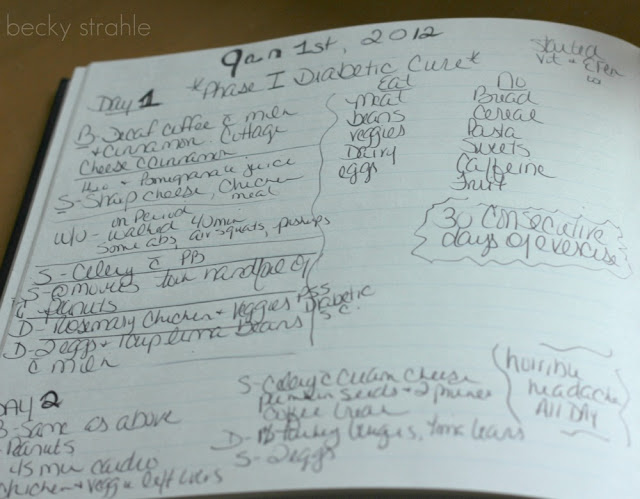 becky strahle
Jan 1st, 2012
*Phase I Diabetic Cure*
Started
Day 1
B- Decaf coffee c milk
+ cinnamon. Cottage
Cheese c cinnamon
H2O + Pomegranate juice
S- Sharp cheese, chicken
meal
on Period
W/O - walked 40 min
some abs, air squats, pushups
S- Celery c PB
S- @ movies handful of
peanuts
D- Rosemary Chicken + Veggies
D- 2 eggs + 1 cup lima beans
c milk
Diabetic
Eat
meat
beans
veggies
Dairy
eggs
No
Bread
Cereal
Pasta
Sweets
Caffeine
Fruit
30 consecutive
days of exercise
DAY 2
B- Same as above
Peanuts
45 min cardio
Chicken + veggie left overs
S- Celery c cream cheese
Pumpkin seeds + 2 prunes
D- Turkey beans
S- 2 eggs
horrible
headache
All DAY